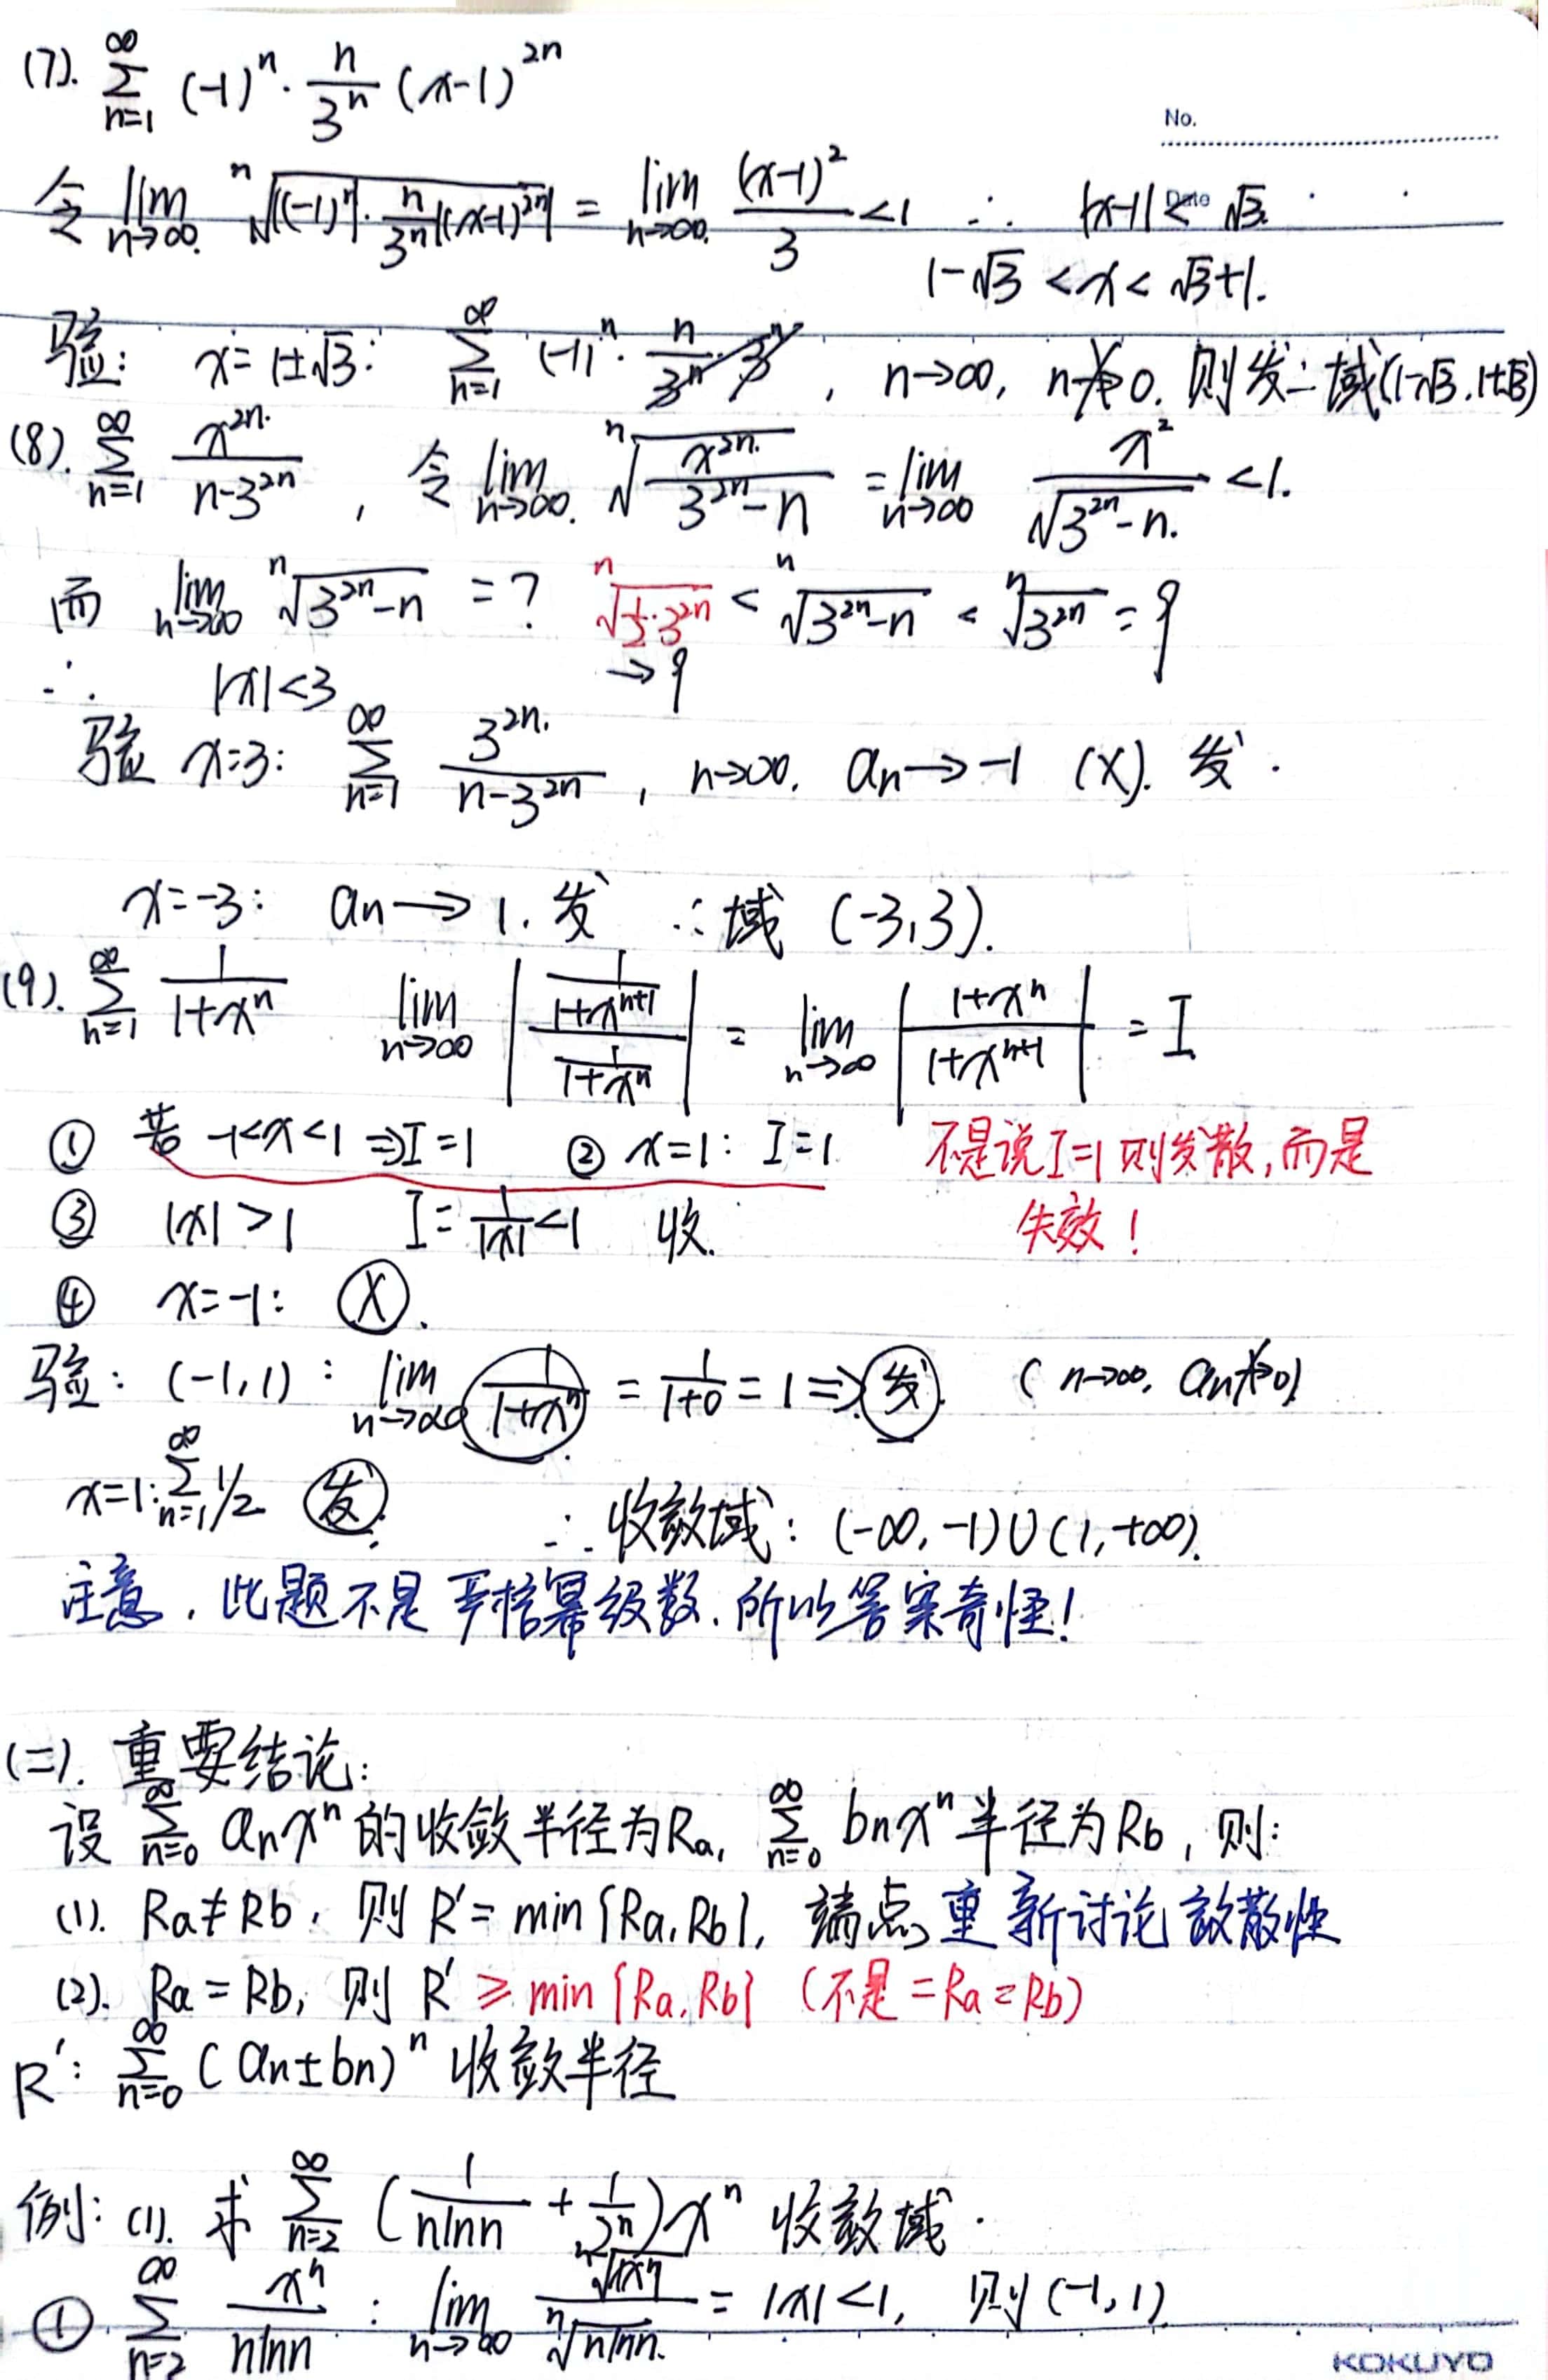 (7). $\sum_{n=1}^{\infty} (-1)^n \cdot \frac{n}{3^n} (x-1)^{2n}$
No.
Date
令 $\lim_{n\to\infty} \sqrt[n]{|(-1)^n| \cdot \frac{n}{3^n} |(x-1)^{2n}|} = \lim_{n\to\infty} \frac{(x-1)^2}{3} < 1$ ∴ $|x-1| < \sqrt{3}$.
$1-\sqrt{3} < x < \sqrt{3}+1$.
验: $x = 1\pm\sqrt{3}$: $\sum_{n=1}^{\infty} (-1)^n \cdot \frac{n}{3^n} \cdot 3^n$, $n\to\infty$, $n \not\to 0$. 则发∴域$(1-\sqrt{3}, 1+\sqrt{3})$
(8). $\sum_{n=1}^{\infty} \frac{x^{2n}}{n-3^{2n}}$, 令 $\lim_{n\to\infty} \sqrt[n]{\frac{x^{2n}}{3^{2n}-n}} = \lim_{n\to\infty} \frac{x^2}{\sqrt{3^{2n}-n}} < 1$.
而 $\lim_{n\to\infty} \sqrt[n]{3^{2n}-n} = ?$ $\sqrt[n]{\frac{1}{2}\cdot 3^{2n}} < \sqrt[n]{3^{2n}-n} < \sqrt[n]{3^{2n}} = 9$
∴ $|x| < 3$ → 9
验 $x=3$: $\sum_{n=1}^{\infty} \frac{3^{2n}}{n-3^{2n}}$, $n\to\infty$. $a_n \to -1$ (X). 发.
$x=-3$: $a_n \to 1$. 发 ∴域 $(-3,3)$.
(9). $\sum_{n=1}^{\infty} \frac{1}{1+x^n}$ $\lim_{n\to\infty} \left| \frac{\frac{1}{1+x^{n+1}}}{\frac{1}{1+x^n}} \right| = \lim_{n\to\infty} \left| \frac{1+x^n}{1+x^{n+1}} \right| = I$
① 若 $-1<x<1$ ⇒ $I=1$ ② $x=1$: $I=1$ 不是说I=1则发散,而是
③ $|x|>1$ $I=\frac{1}{|x|}<1$ 收. 失效!
④ $x=-1$: Ⓧ.
验: $(-1,1)$: $\lim_{n\to\infty} \frac{1}{1+x^n} = \frac{1}{1+0} = 1$ ⇒ 发. ($n\to\infty$, $a_n \not\to 0$)
$x=1$: $\sum_{n=1}^{\infty} 1/2$ 发. ∴收敛域: $(-\infty,-1)\cup(1,+\infty)$.
注意, 此题不是严格幂级数, 所以答案奇怪!
(二). 重要结论:
设 $\sum_{n=0}^{\infty} a_n x^n$ 的收敛半径为$R_a$, $\sum_{n=0}^{\infty} b_n x^n$ 半径为$R_b$, 则:
(1). $R_a \neq R_b$, 则 $R' = \min\{R_a, R_b\}$, 端点重新讨论敛散性
(2). $R_a = R_b$, 则 $R' \geq \min\{R_a, R_b\}$ (不是 $=R_a=R_b$)
$R'$: $\sum_{n=0}^{\infty} (a_n \pm b_n)^n$ 收敛半径
例: (1). 求 $\sum_{n=2}^{\infty} (\frac{1}{n\ln n} + \frac{1}{2^n}) x^n$ 收敛域.
① $\sum_{n=2}^{\infty} \frac{x^n}{n\ln n}$: $\lim_{n\to\infty} \frac{\sqrt[n]{|x^n|}}{\sqrt[n]{n\ln n}} = |x| < 1$, 则 $(-1,1)$
KOKUYO